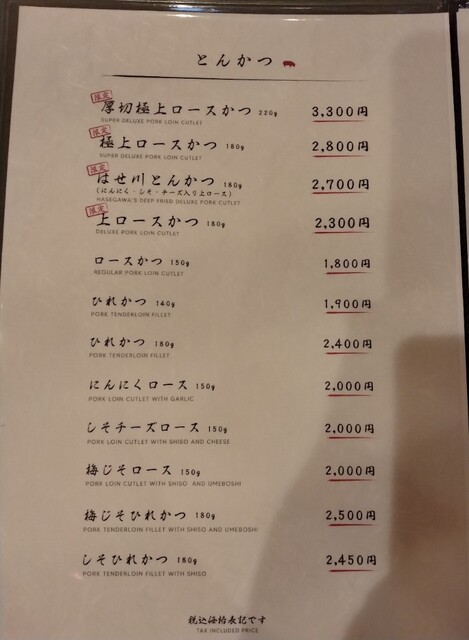 とんかつ
限定
厚切極上ロースかつ 220g 3,300円
SUPER DELUXE PORK LOIN CUTLET
限定
極上ロースかつ 180g 2,800円
SUPER DELUXE PORK LOIN CUTLET
限定
はせ川とんかつ 180g 2,700円
(にんにく・しそ・チーズ入り上ロース)
HASEGAWA'S DEEP FRIED DELUXE PORK CUTLET
限定
上ロースかつ 180g 2,300円
DELUXE PORK LOIN CUTLET
ロースかつ 150g 1,800円
REGULAR PORK LOIN CUTLET
ひれかつ 140g 1,900円
PORK TENDERLOIN FILLET
ひれかつ 180g 2,400円
PORK TENDERLOIN FILLET
にんにくロース 150g 2,000円
PORK LOIN CUTLET WITH GARLIC
しそチーズロース 150g 2,000円
PORK LOIN CUTLET WITH SHISO AND CHEESE
梅じそロース 150g 2,000円
PORK LOIN CUTLET WITH SHISO AND UMEBOSHI
梅じそひれかつ 180g 2,500円
PORK TENDERLOIN FILLET WITH SHISO AND UMEBOSHI
しそひれかつ 180g 2,450円
PORK TENDERLOIN FILLET WITH SHISO
税込価格表記です
TAX INCLUDED PRICE